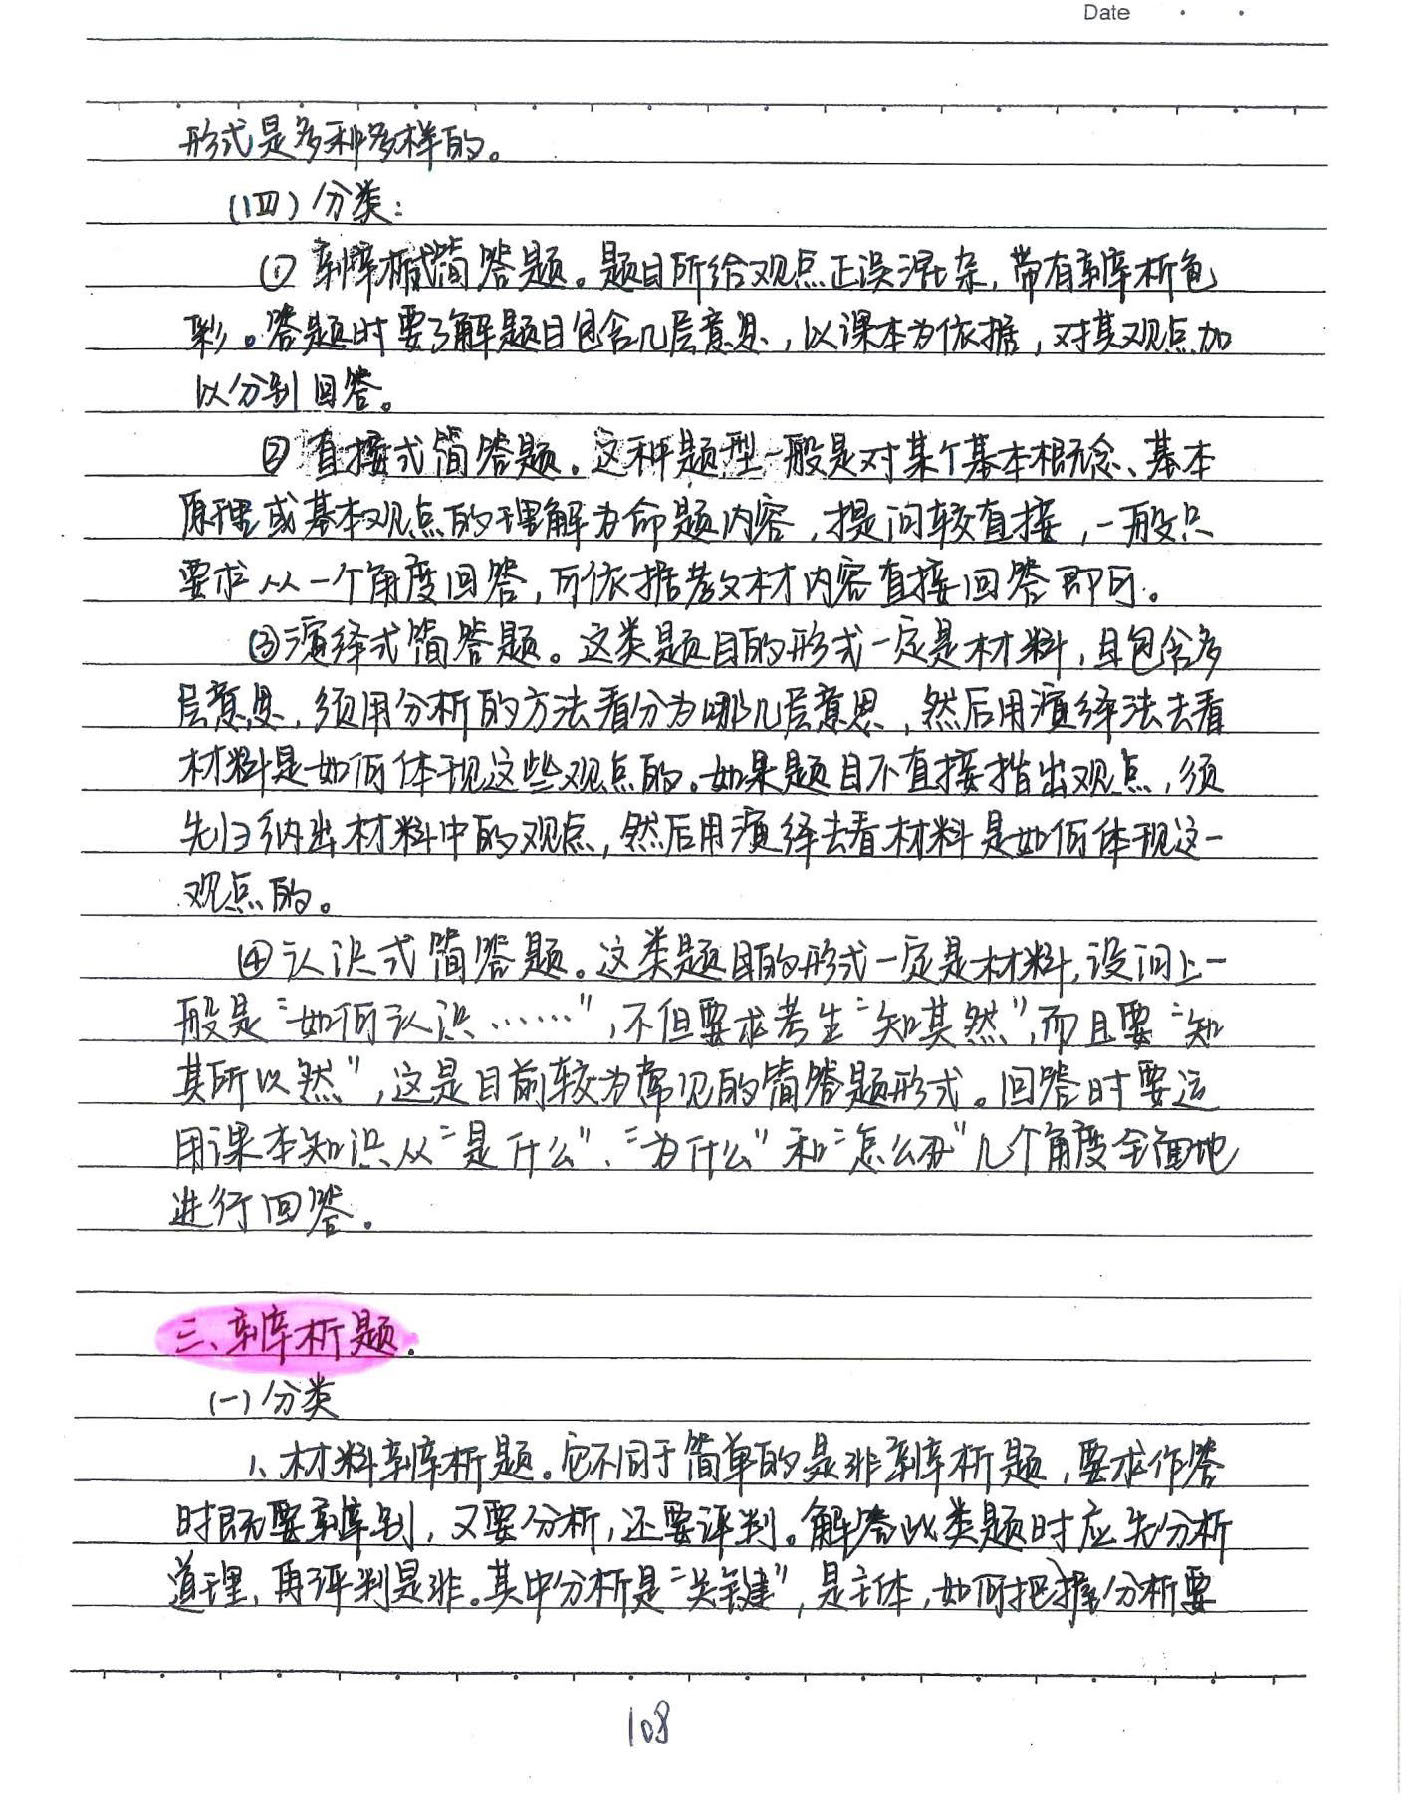 Date
形式是多种多样的。
(四) 分类:
① 辨析式简答题。题目所给观点正误混杂，带有辨析色
彩。答题时要了解题目包含几层意思，以课本为依据，对其观点加
以分别回答。
② 直接式简答题。这种题型一般是对某个基本概念、基本
原理或基本观点的理解为命题内容，提问较直接，一般只
要求从一个角度回答，可依据教材内容直接回答即可。
③演绎式简答题。这类题目的形式一定是材料，且包含多
层意思，须用分析的方法看分为哪几层意思，然后用演绎法去看
材料是如何体现这些观点的。如果题目不直接指出观点，须
先归纳出材料中的观点，然后用演绎去看材料是如何体现这一
观点的。
④认识式简答题。这类题目的形式一定是材料，设问上一
般是“如何认识……”，不但要求考生“知其然”，而且要“知
其所以然”，这是目前较为常见的简答题形式。回答时要运
用课本知识从“是什么”、“为什么”和“怎么办”几个角度全面地
进行回答。
三、辨析题.
(一) 分类
1、材料辨析题。它不同于简单的是非辨析题，要求作答
时既要辨别，又要分析，还要评判。解答此类题时应先分析
道理，再评判是非。其中分析是“关键”，是主体，如何把握分析要
108